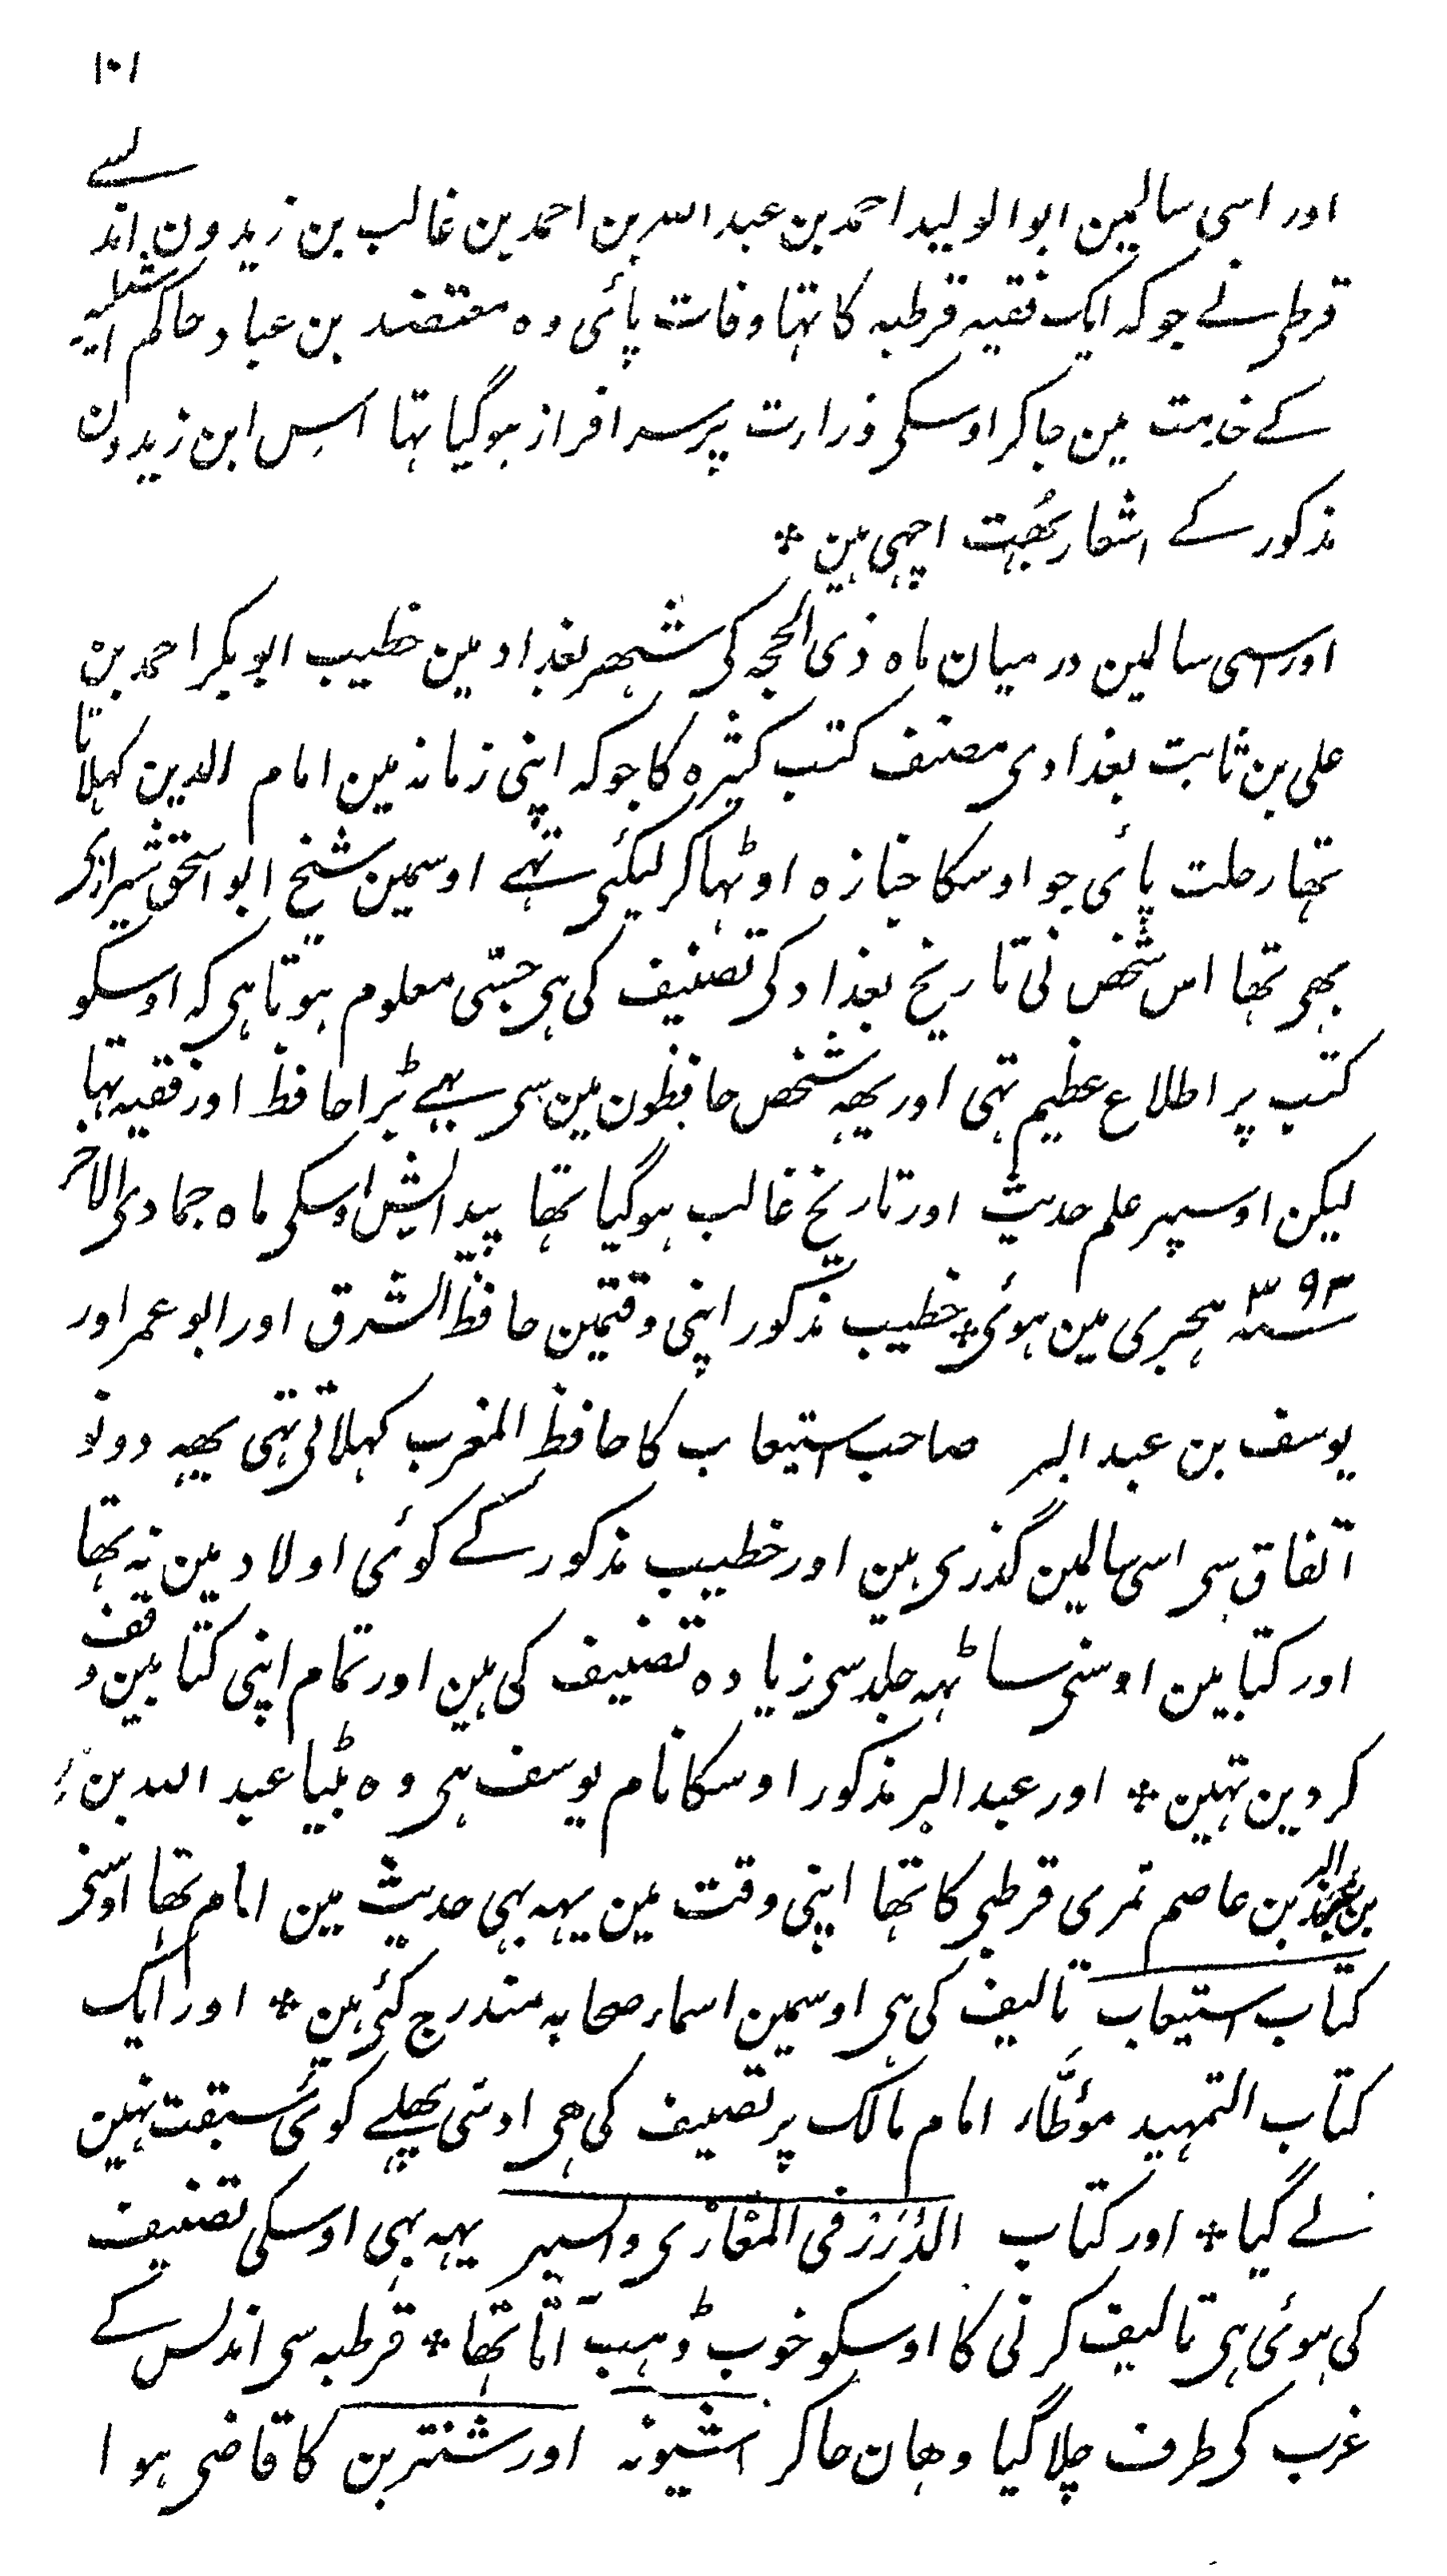 ۱۰۱
اور اسی سالمین ابوالولید احمد بن عبد اللہ بن احمد بن غالب بن زیدون اندلسے
قرطبی نے جو کہ ایک فقیہ قرطبہ کا تہا وفات پائی وہ معتضد بن عباد حاکم اشبیلیہ
کے خدمت مین جاکر اوسکی وزارت پر سرافراز ہوگیا تہا اسِ ابن زیدون
مذکور کے اشعار بھُت اچہی ہین *
اور اسی سالمین درمیان ماہ ذی الحجہ کی شہر بغداد مین خطیب ابوبکر احمد بن
علی بن ثابت بغدادی مصنف کتب کثیرہ کا جو کہ اپنی زمانہ مین امام الدین کہلاتا
تھا رحلت پائی جو اوسکا جنازہ اوٹہاکر لیگئی تہے اوسمین شیخ ابو اسحق شیرازی
بھی تھا اس شخص نی تاریخ بغداد کی تصنیف کی ہی جسّی معلوم ہوتا ہی کہ اوسکو
کتب پر اطلاع عظیم تہی اور یھہ شخص حافظون مین سی ہے بڑا حافظ اور فقیہ تہا
لیکن اوسپر علم حدیث اور تاریخ غالب ہوگیا تھا پیدایش اوسکی ماہ جمادی الاخر
۳۹۳ سنہ ہجری مین ہوئی * خطیب مذکور اپنی وقتمین حافظ الشرق اور ابو عمر اور
یوسف بن عبد البر صاحب استیعاب کا حافظ المغرب کہلاتی تہی یھہ دونو
اتفاق سی اسی سالمین گذری ہین اور خطیب مذکور کے کوئی اولاد مین نہ تھا
اور کتابین اوسنی ساٹہہ جلد سی زیادہ تصنیف کی ہین اور تمام اپنی کتابین وقف
کر دین تہین * اور عبد البر مذکور اوسکا نام یوسف ہی وہ بٹیا عبد اللہ بن
بن عبد البر بن عاصم نمری قرطبی کا تھا اپنی وقت مین یہہ بہی حدیث مین امام تھا اوسنی
کتاب استیعاب تالیف کی ہی اوسمین اسماء صحابہ مندرج کئی ہین * اور ایک
کتاب التمہید موُطّاء امام مالک پر تصنیف کی ھی اوسّی پھلے کوئی سبقت نہین
لے گیا * اور کتاب الدُرَرْ فی المغازی والسیر یہہ بہی اوسکی تصنیف
کی ہوئی ہی تالیف کرنی کا اوسکو خوب ڈہب آتا تھا * قرطبہ سی اندلس کے
غرب کی طرف چلا گیا وھان جاکر اشبونہ اور شنترین کا قاضی ہوا